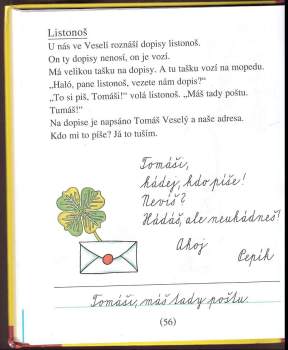 Listonoš
U nás ve Veselí roznáší dopisy listonoš.
On ty dopisy nenosí, on je vozí.
Má velikou tašku na dopisy. A tu tašku vozí na mopedu.
„Haló, pane listonoš, vezete nám dopis?“
„To si piš, Tomáši!“ volá listonoš. „Máš tady poštu.
Tumáš!“
Na dopise je napsáno Tomáš Veselý a naše adresa.
Kdo mi to píše? Já to tuším.
Tomáši,
hádej, kdo píše!
Nevíš?
Hádáš, ale neuhádneš!
Ahoj
Pepík
Tomáši, máš tady poštu.
(56)